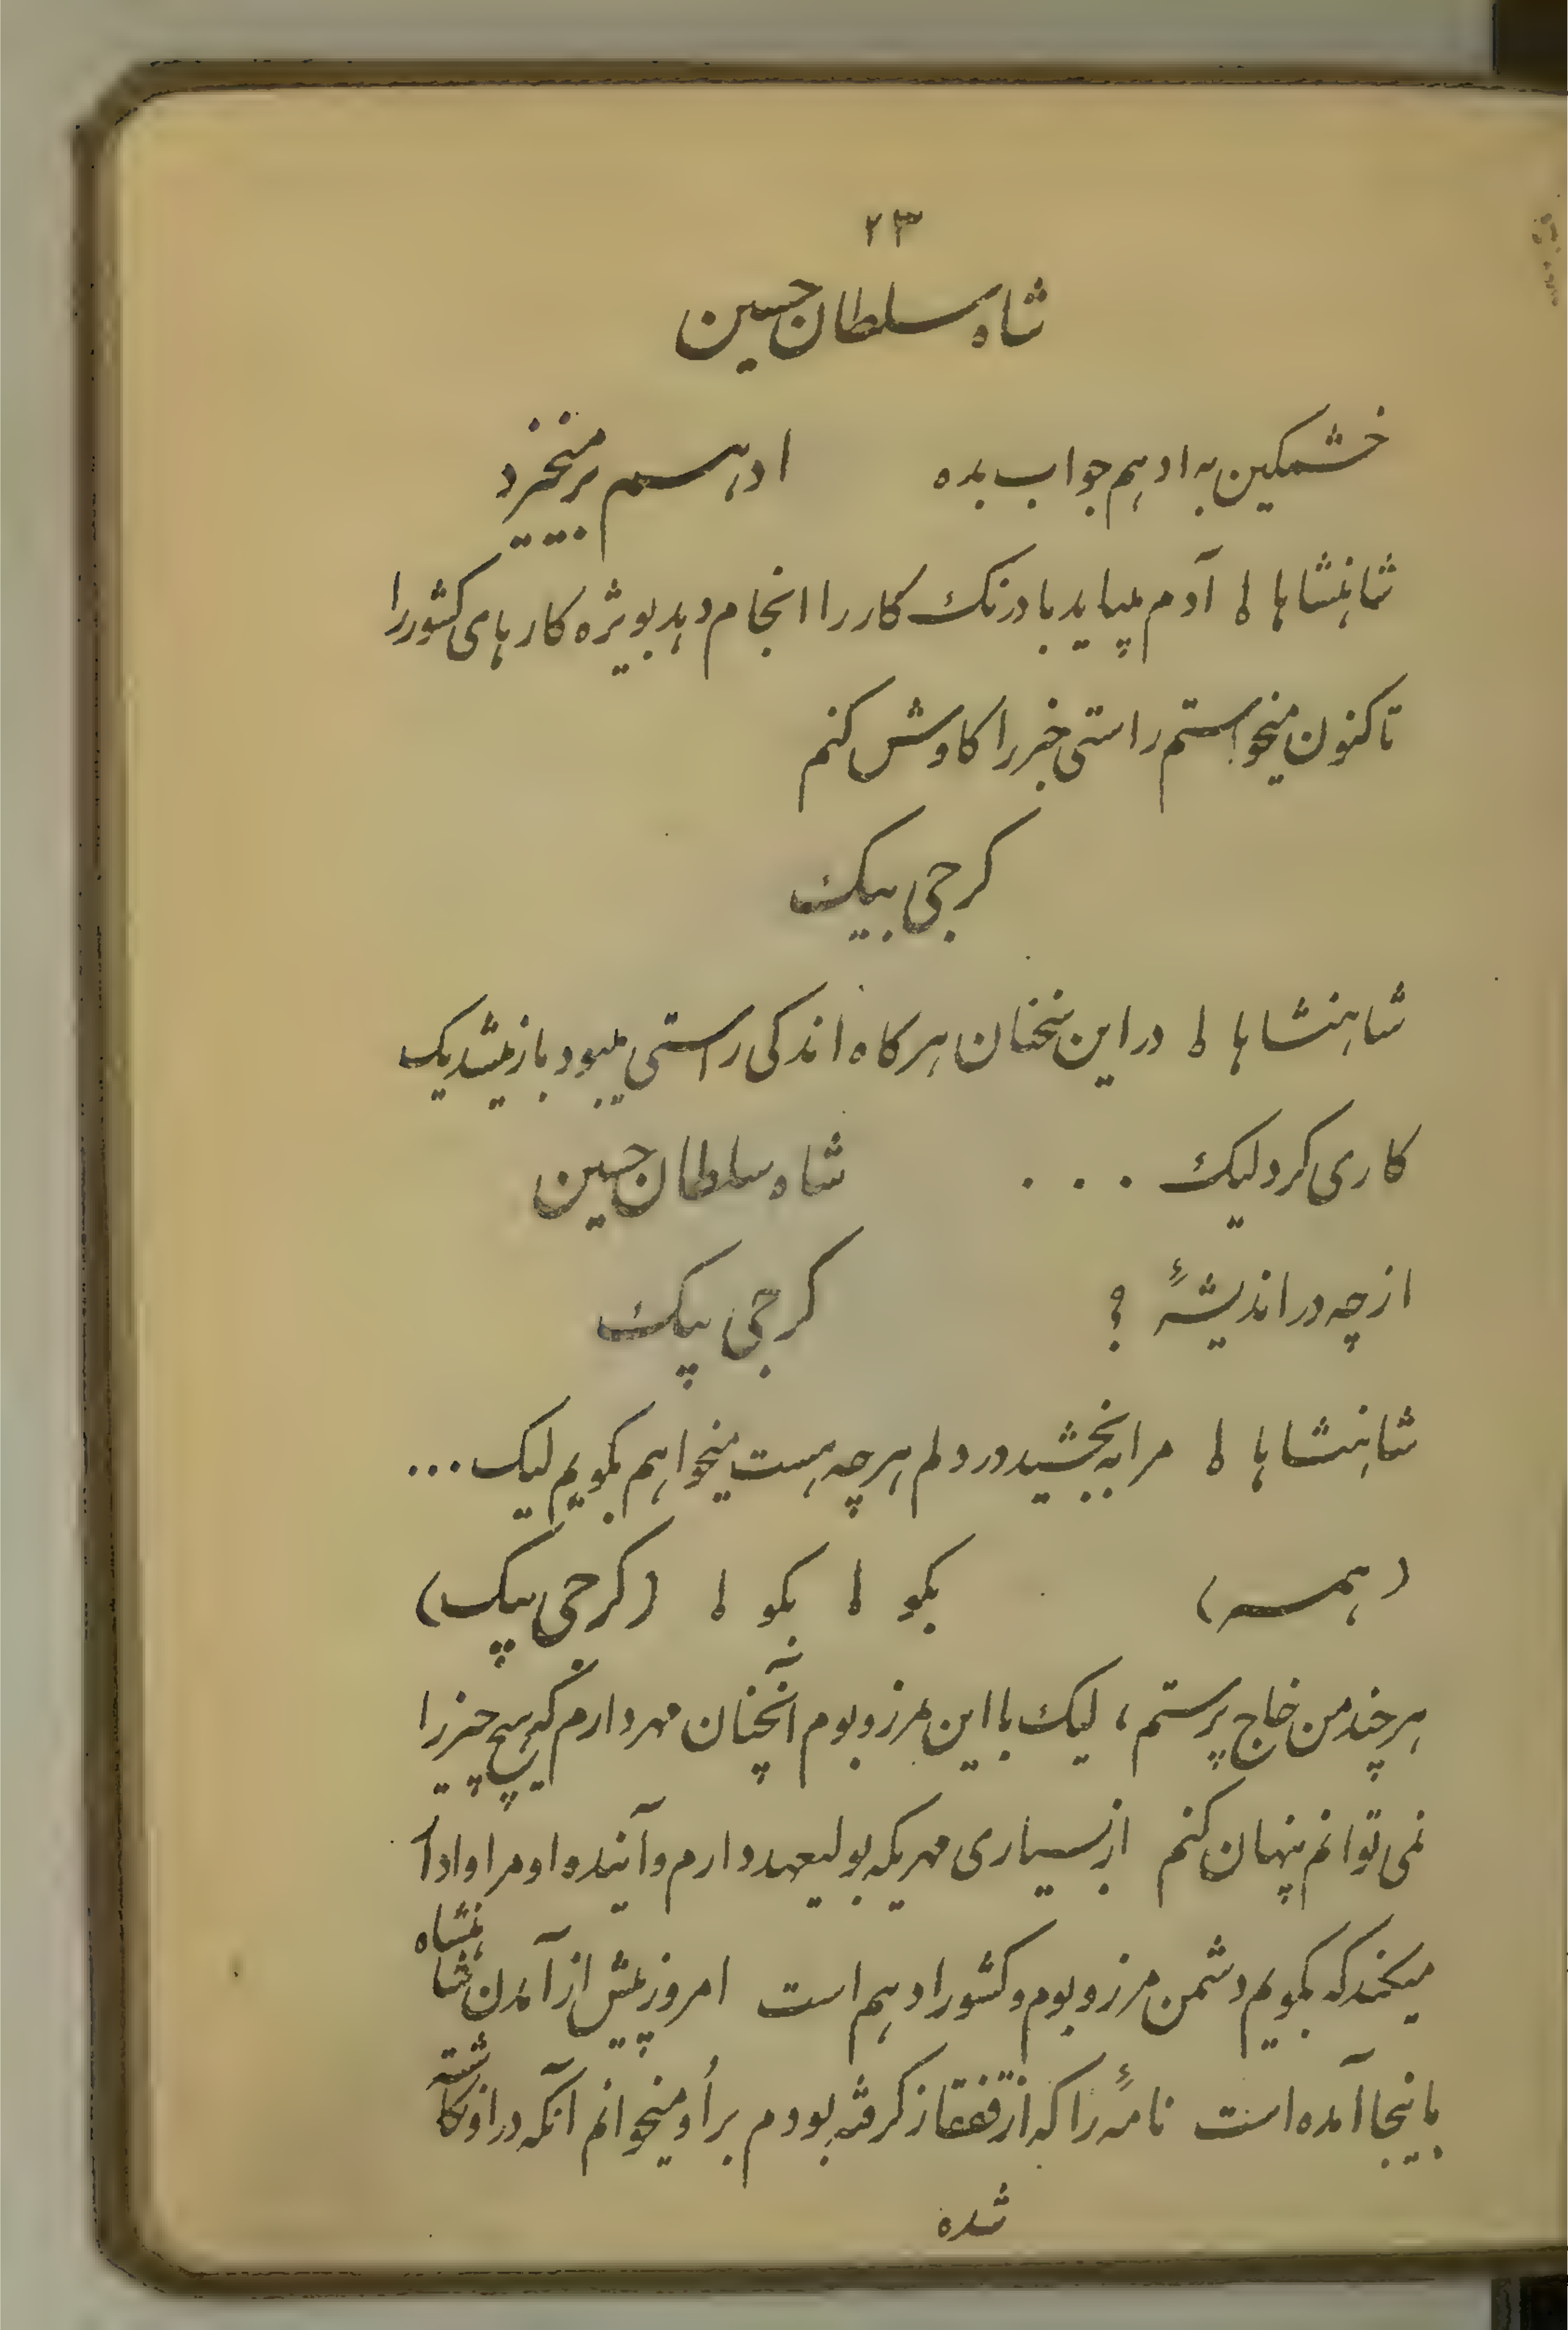 ۲۳
شاه سلطان حسین
خشمکین به ادهم جواب بده ادهم برمیخیزد
شاهنشاها ! آدم میباید با درنک کار را انجام دهد بویژه کارهای کشور را
تا کنون میخواستم راستی خبر را کاوش کنم
کرجی بیک
شاهنشاها ! در این سخنان هرکاه اندکی راستی میبود باز میشد یک
کاری کرد لیک . . . شاه سلطان حسین
از چه در اندیشهٔ ؟ کرجی بیک
شاهنشاها ! مرا به بخشید در دلم هرچه هست میخواهم بکویم لیک ...
(همه) بکو ! بکو ! (کرجی بیک)
هرچند من خاج پرستم، لیک با این مرز و بوم آنچنان مهر دارم که هیچ چیز را
نمی توانم پنهان کنم از بسیاری مهریکه بولیعهد دارم و آینده او مرا وادا
میکند که بکویم دشمن مرز و بوم و کشور ادهم است امروز پیش از آمدن شاهنشاه
باینجا آمده است نامهٔ را که از قفقاز کرفته بودم براُو میخوانم آنکه در او نکاشته
شده